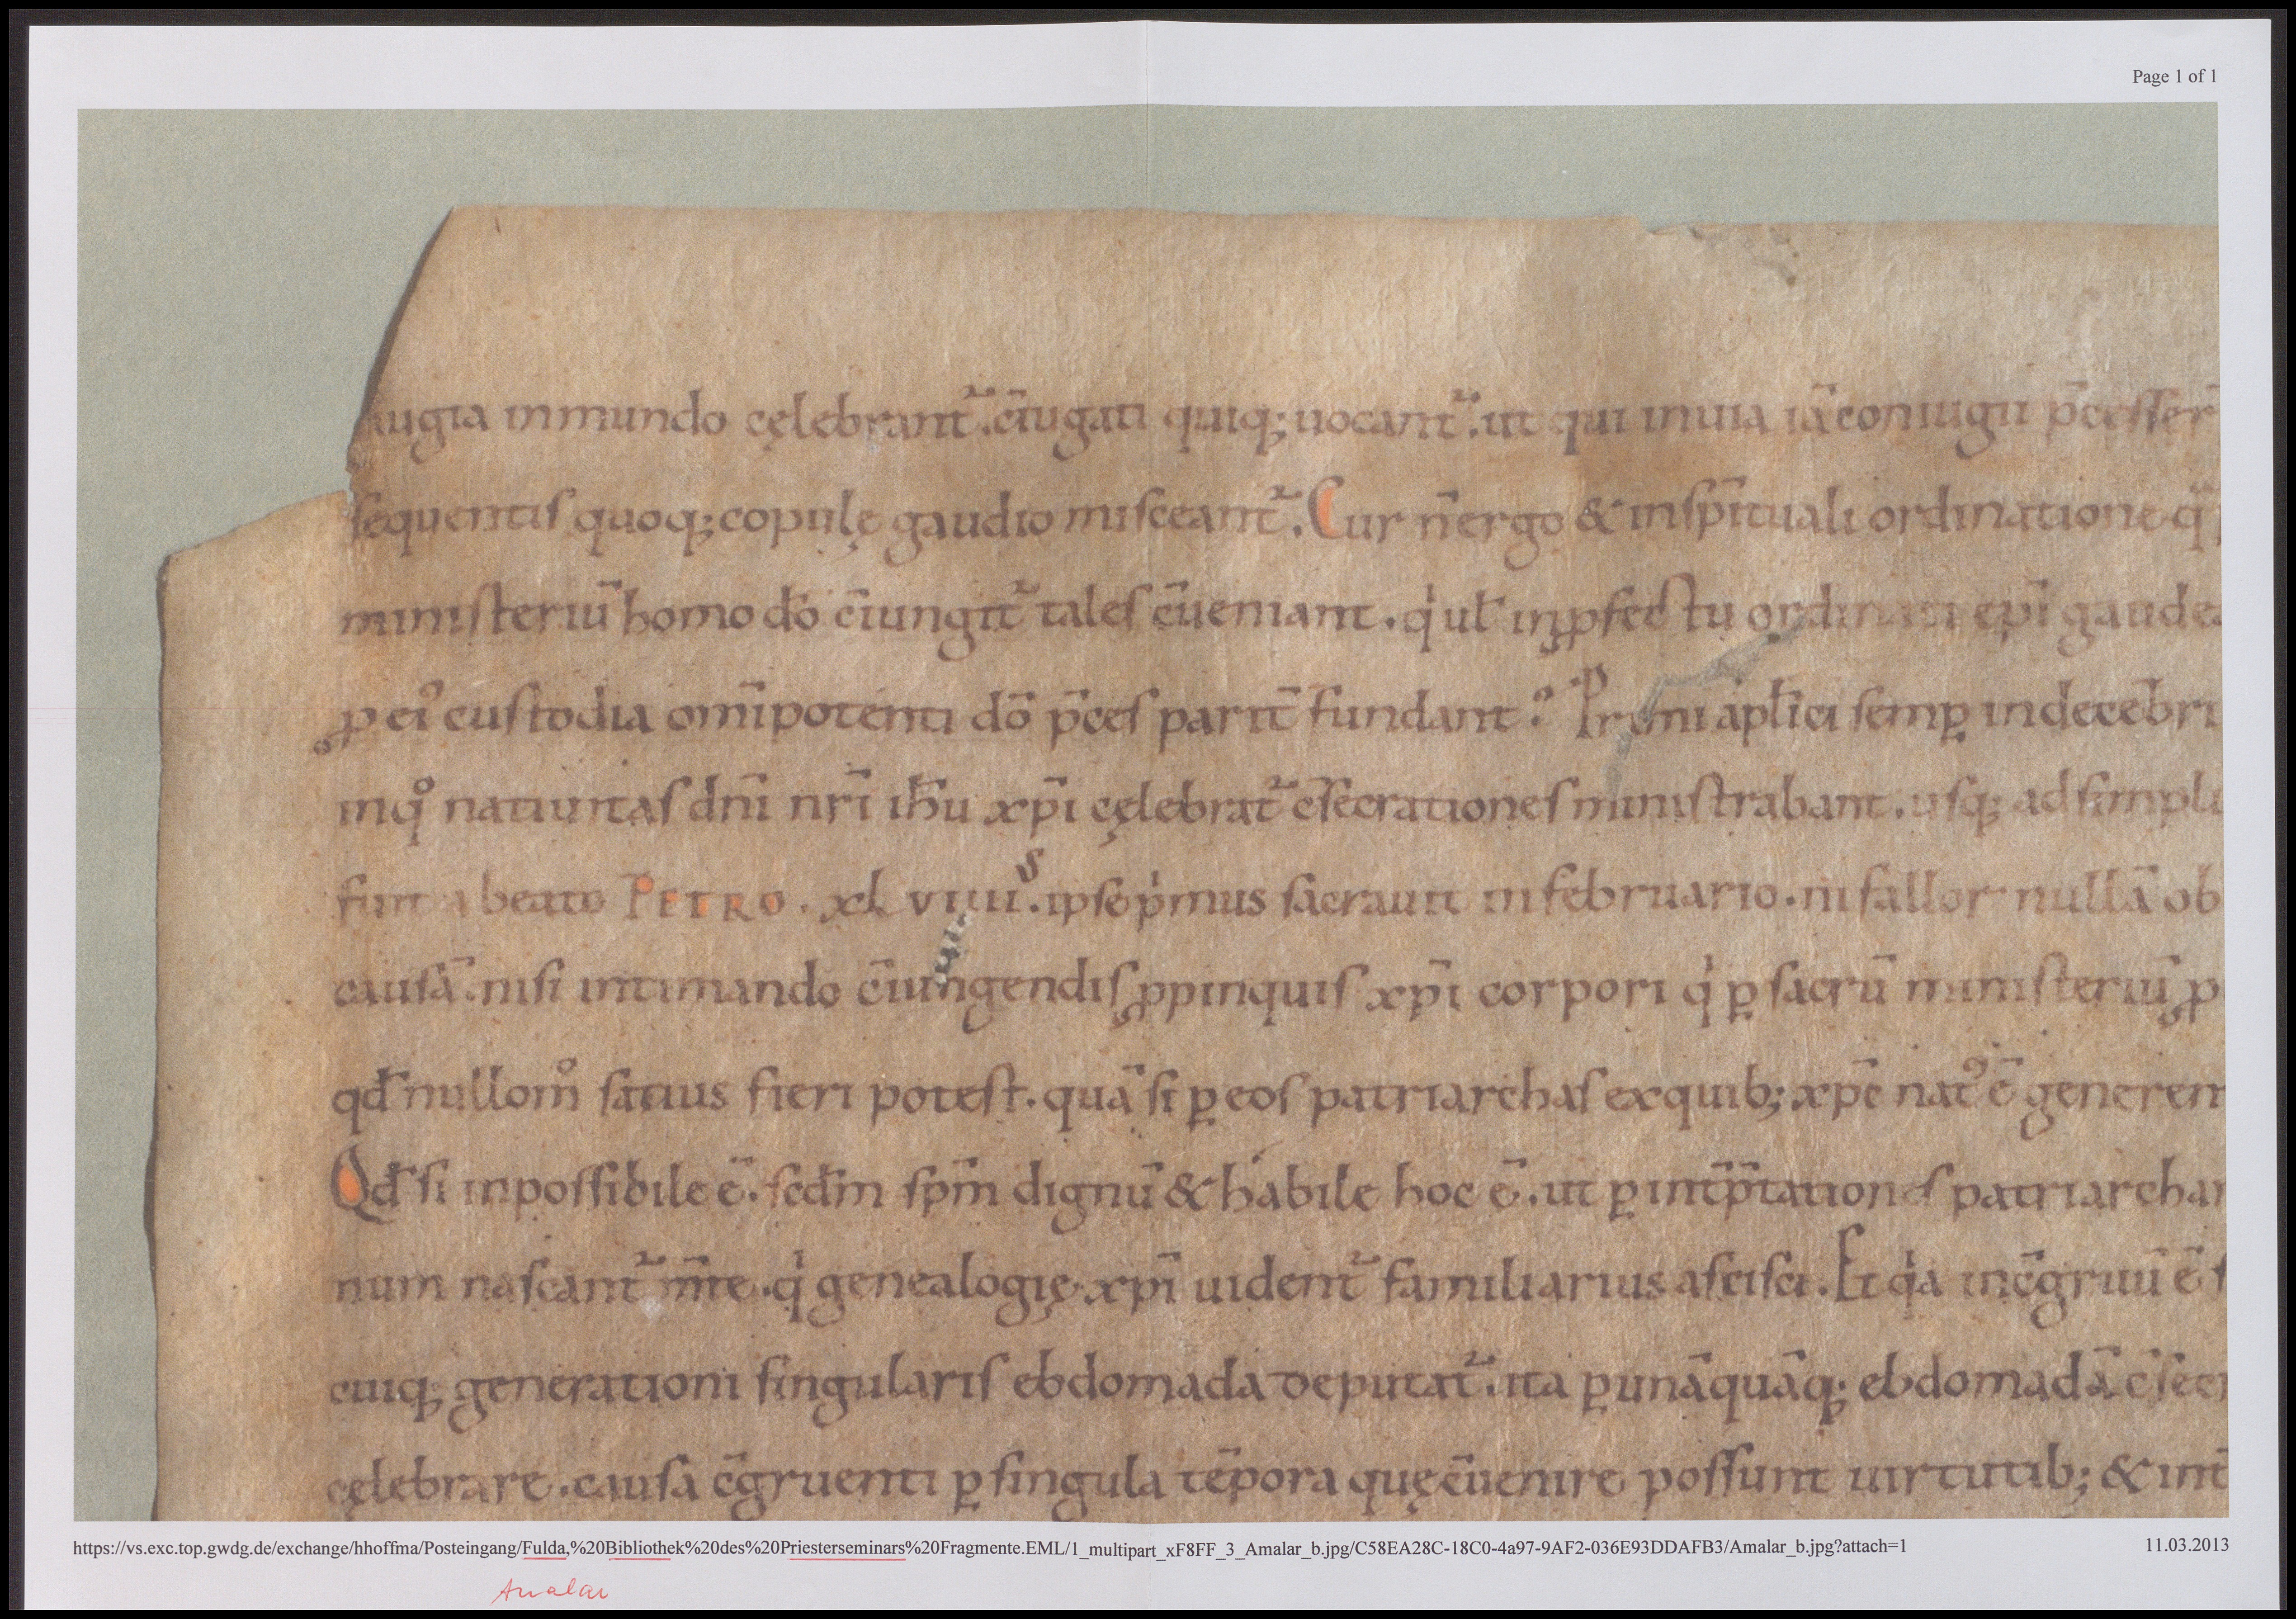 Page 1 of 1
iugia in mundo cęlebrant᷑. c̄iugati quiq; uocant᷑. ut qui in uia iā coniugii p̄cesser̄
sequentis quoq; copulę gaudio misceant᷑. Cur n̄ ergo & in sp̄irituali ordinatione q̄
ministeriū homo dō c̄iungit᷑ tales c̄ueniant. qͥ ul̄ in ꝓfectu ordinati ep̄i gaude
ꝓ eiꝰ custodia om̄ipotenti dō p̄ces parit̄ fundant? Primi apl̄ici semꝑ in decēbri
in qͦ natiuitas dn̄i nr̄i ih̄u xp̄i cęlebrat᷑ c̄secrationes ministrabant. usq; ad simpli
fuit a beato PETRO. xl viiiiˢ. ipse pͥmus sacrauit in februario. ni fallor nullā ob
causā. nisi intimando c̄iungendis ꝓpinquis xp̄i corpori qͥ ꝑ sacrū ministeriū ꝓ
qd̄ nullomͦ satius fieri potest. quā si ꝑ eos patriarchas ex quib; xp̄c natꝰ ē generent
Qd̄ si inpossibile ē. scd̄m sp̄m dignū & habile hoc ē. ut ꝑ int̄p̄tationes patriarchar
num nascant᷑ m̄te. qͥ genealogię xp̄i uident᷑ familiarius ascisci. Et qͥa inc̄gruū ē s
cuiq; generationi singularis ebdomada deputat᷑. ita ꝑ unāquāq; ebdomadā c̄secr
cęlebrare. causa c̄gruenti ꝑ singula tēpora quę c̄uenire possunt uirtutib; & int̄
https://vs.exc.top.gwdg.de/exchange/hhoffma/Posteingang/Fulda,%20Bibliothek%20des%20Priesterseminars%20Fragmente.EML/1_multipart_xF8FF_3_Amalar_b.jpg/C58EA28C-18C0-4a97-9AF2-036E93DDAFB3/Amalar_b.jpg?attach=1 11.03.2013
Amalar